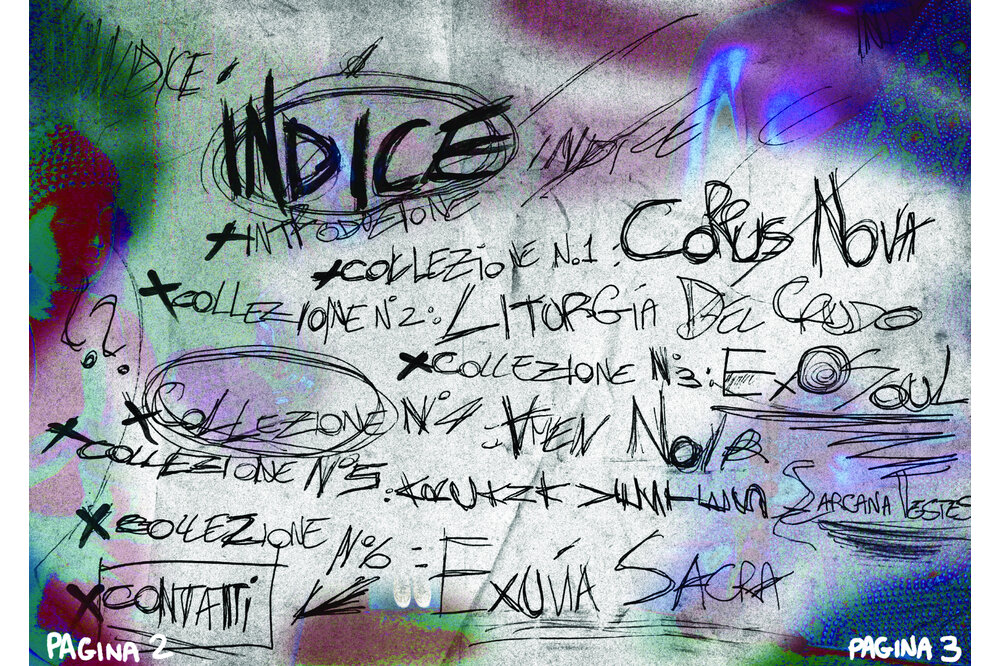 INDICE
INDICE
INDICE
× INTRODUZIONE
× COLLEZIONE N.1: CORPUS NOVA
× COLLEZIONE N°2: LITURGIA DEL CRUDO
× COLLEZIONE N°3: EXOSOUL
× COLLEZIONE N°4: NOIR
× COLLEZIONE N°5: SARCANA TESTES
× COLLEZIONE N°6: EXUVIA SACRA
× CONTATTI
PAGINA 2
PAGINA 3